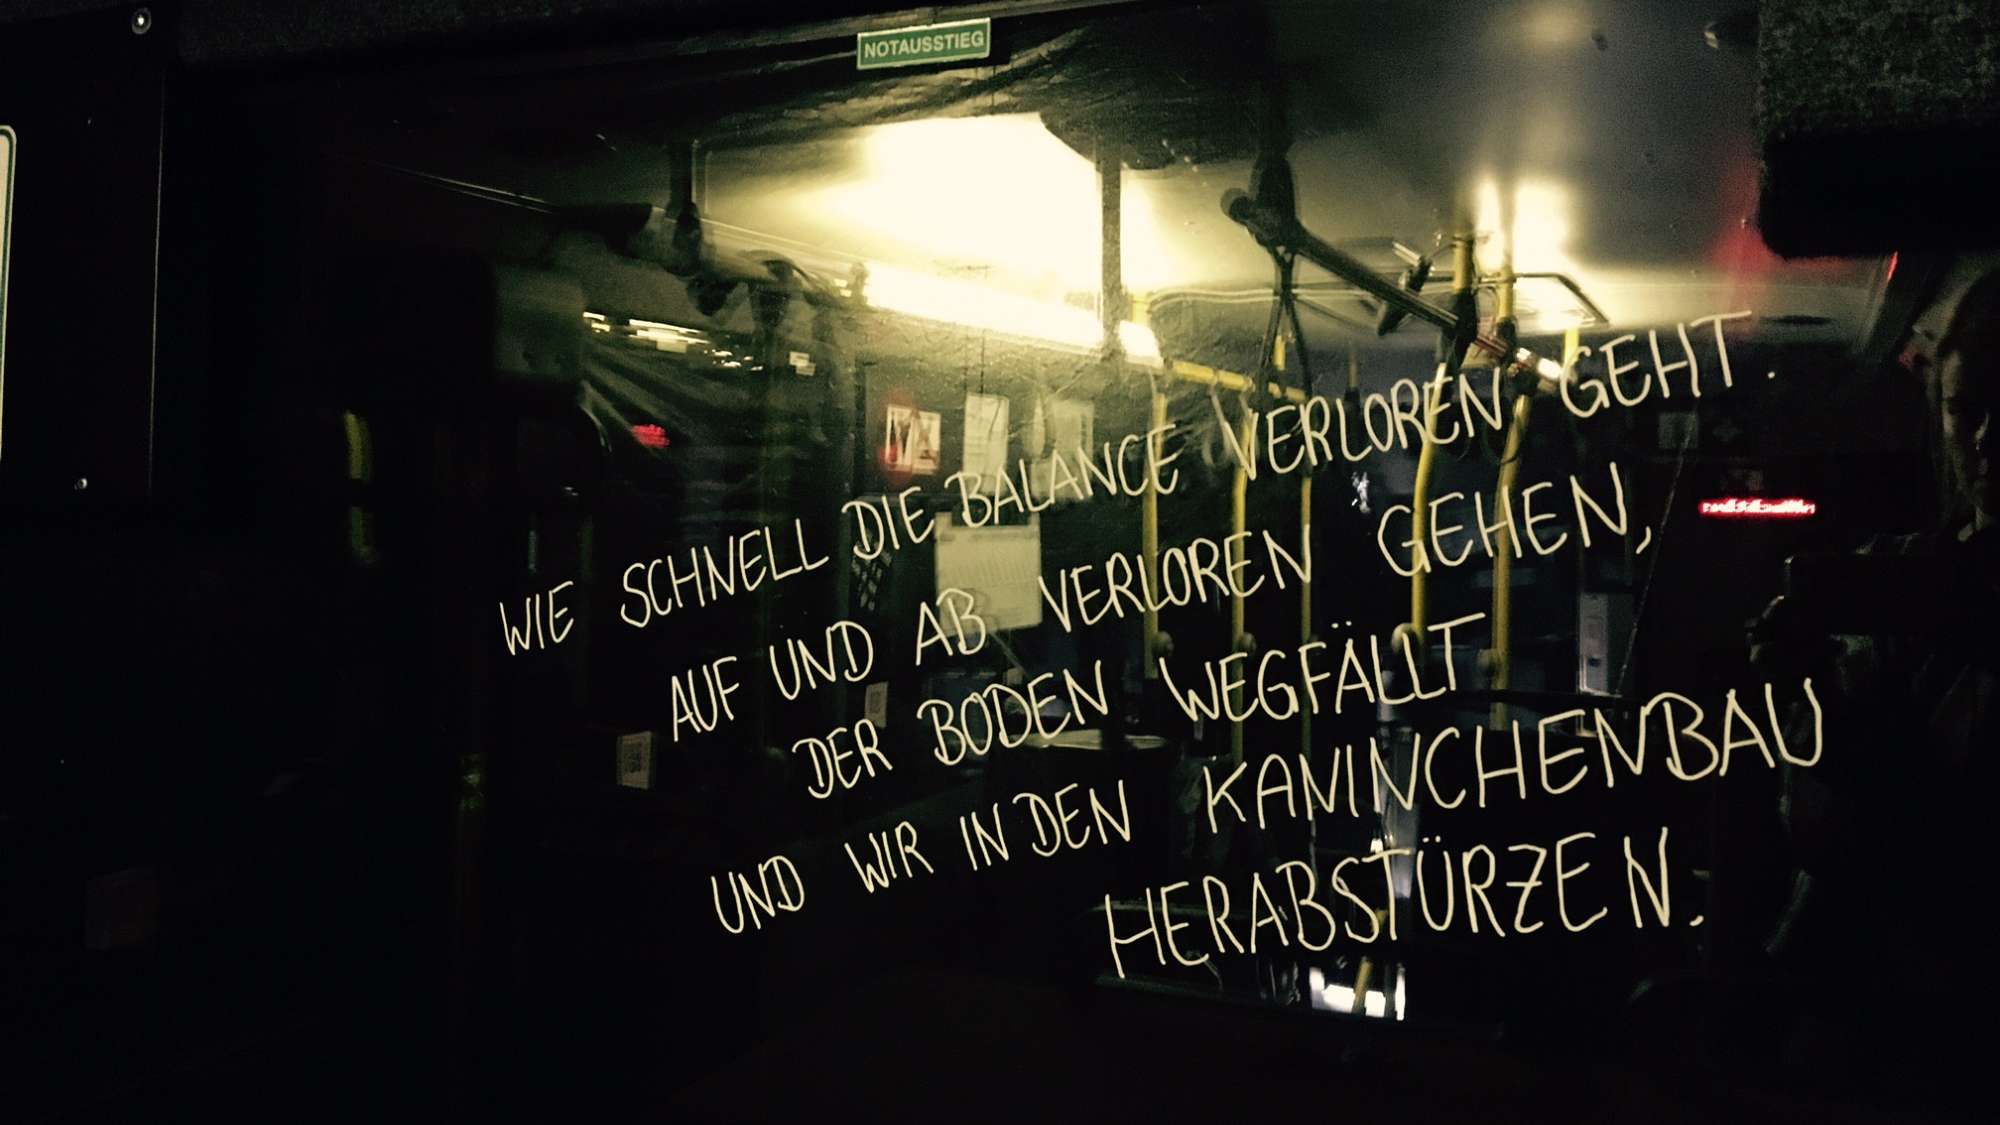 NOTAUSSTIEG
WIE SCHNELL DIE BALANCE VERLOREN GEHT.
AUF UND AB VERLOREN GEHEN,
DER BODEN WEGFÄLLT
UND WIR IN DEN KANINCHENBAU
HERABSTÜRZEN.